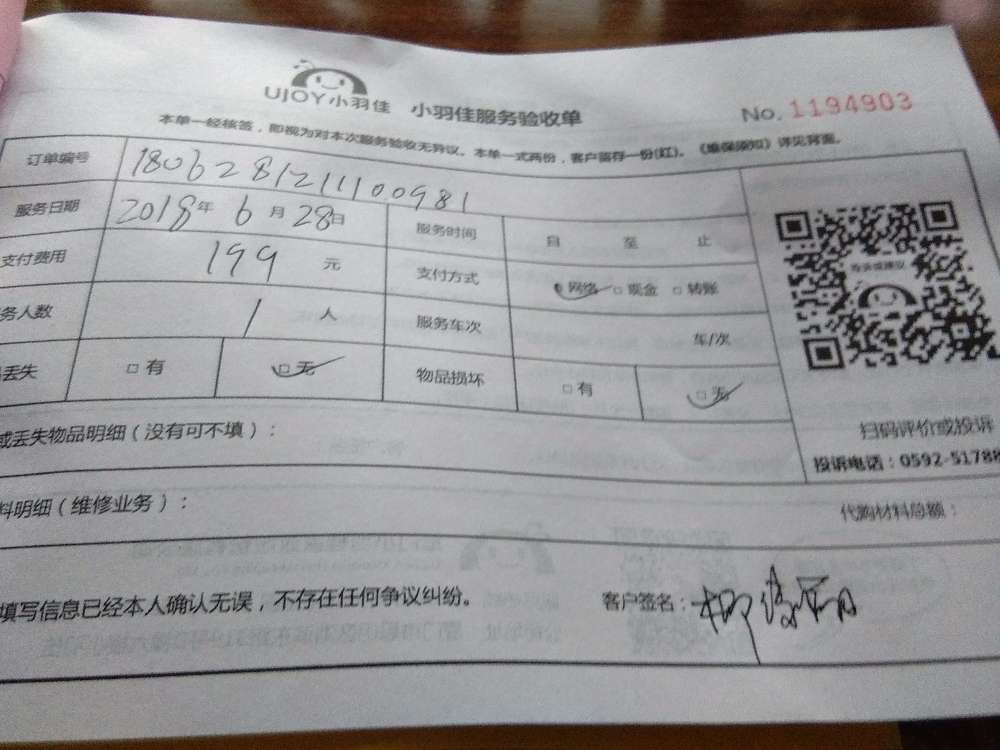 UJOY小羽佳 小羽佳服务验收单 No. 1194903
本单一经核签，即视为对本次服务验收无异议。本单一式两份，客户留存一份(红)。《维保须知》详见背面。
订单编号 180628121110098​1
服务日期 2018年 6月 28日 服务时间 自 至 止
支付费用 199 元 支付方式 网络 □现金 □转账
务人数 1 人 服务车次 车/次
丢失 □有 □无 物品损坏 □有 □无
投诉或建议
扫码评价或投诉
投诉电话：0592-51788
或丢失物品明细（没有可不填）：
料明细（维修业务）： 代购材料总额：
填写信息已经本人确认无误，不存在任何争议纠纷。 客户签名：